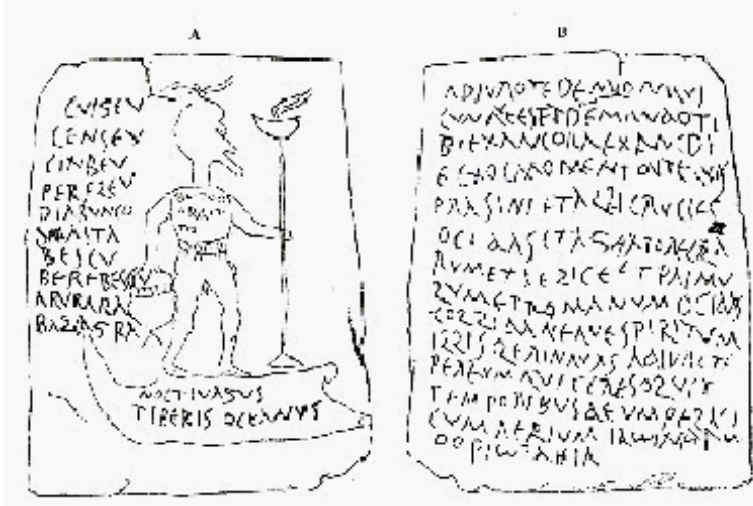 A
B
CUIGEU
CENSEU
CINBEU
PERFLEU
DIARUNCO
DEASTA
BESCU
BEREBESCU
ARURARA
BAZAGRA
NOCTIVAGUS
TIBERIS OCEANUS
ADIURO TE DEMON QUI
CUNQUE ES ET DEMANDO TI
BI EX ANC ORA EX ANC DI
E EX OC MOMENTO UT EQUOS
PRASINI ET ALBI CRUCIES
OCIDAS ET AGITATORE CLA
RUM ET FELICE ET PRIMU
LUM ET ROMANUM OCIDAS
COLLIDA NEQUE SPIRITUM
ILLIS LERINQUAS ADIURO TE
PER EUM QUI TE RESOLVIT
TEMPORIBUS DEUM PELAGI
CUM AERIUM